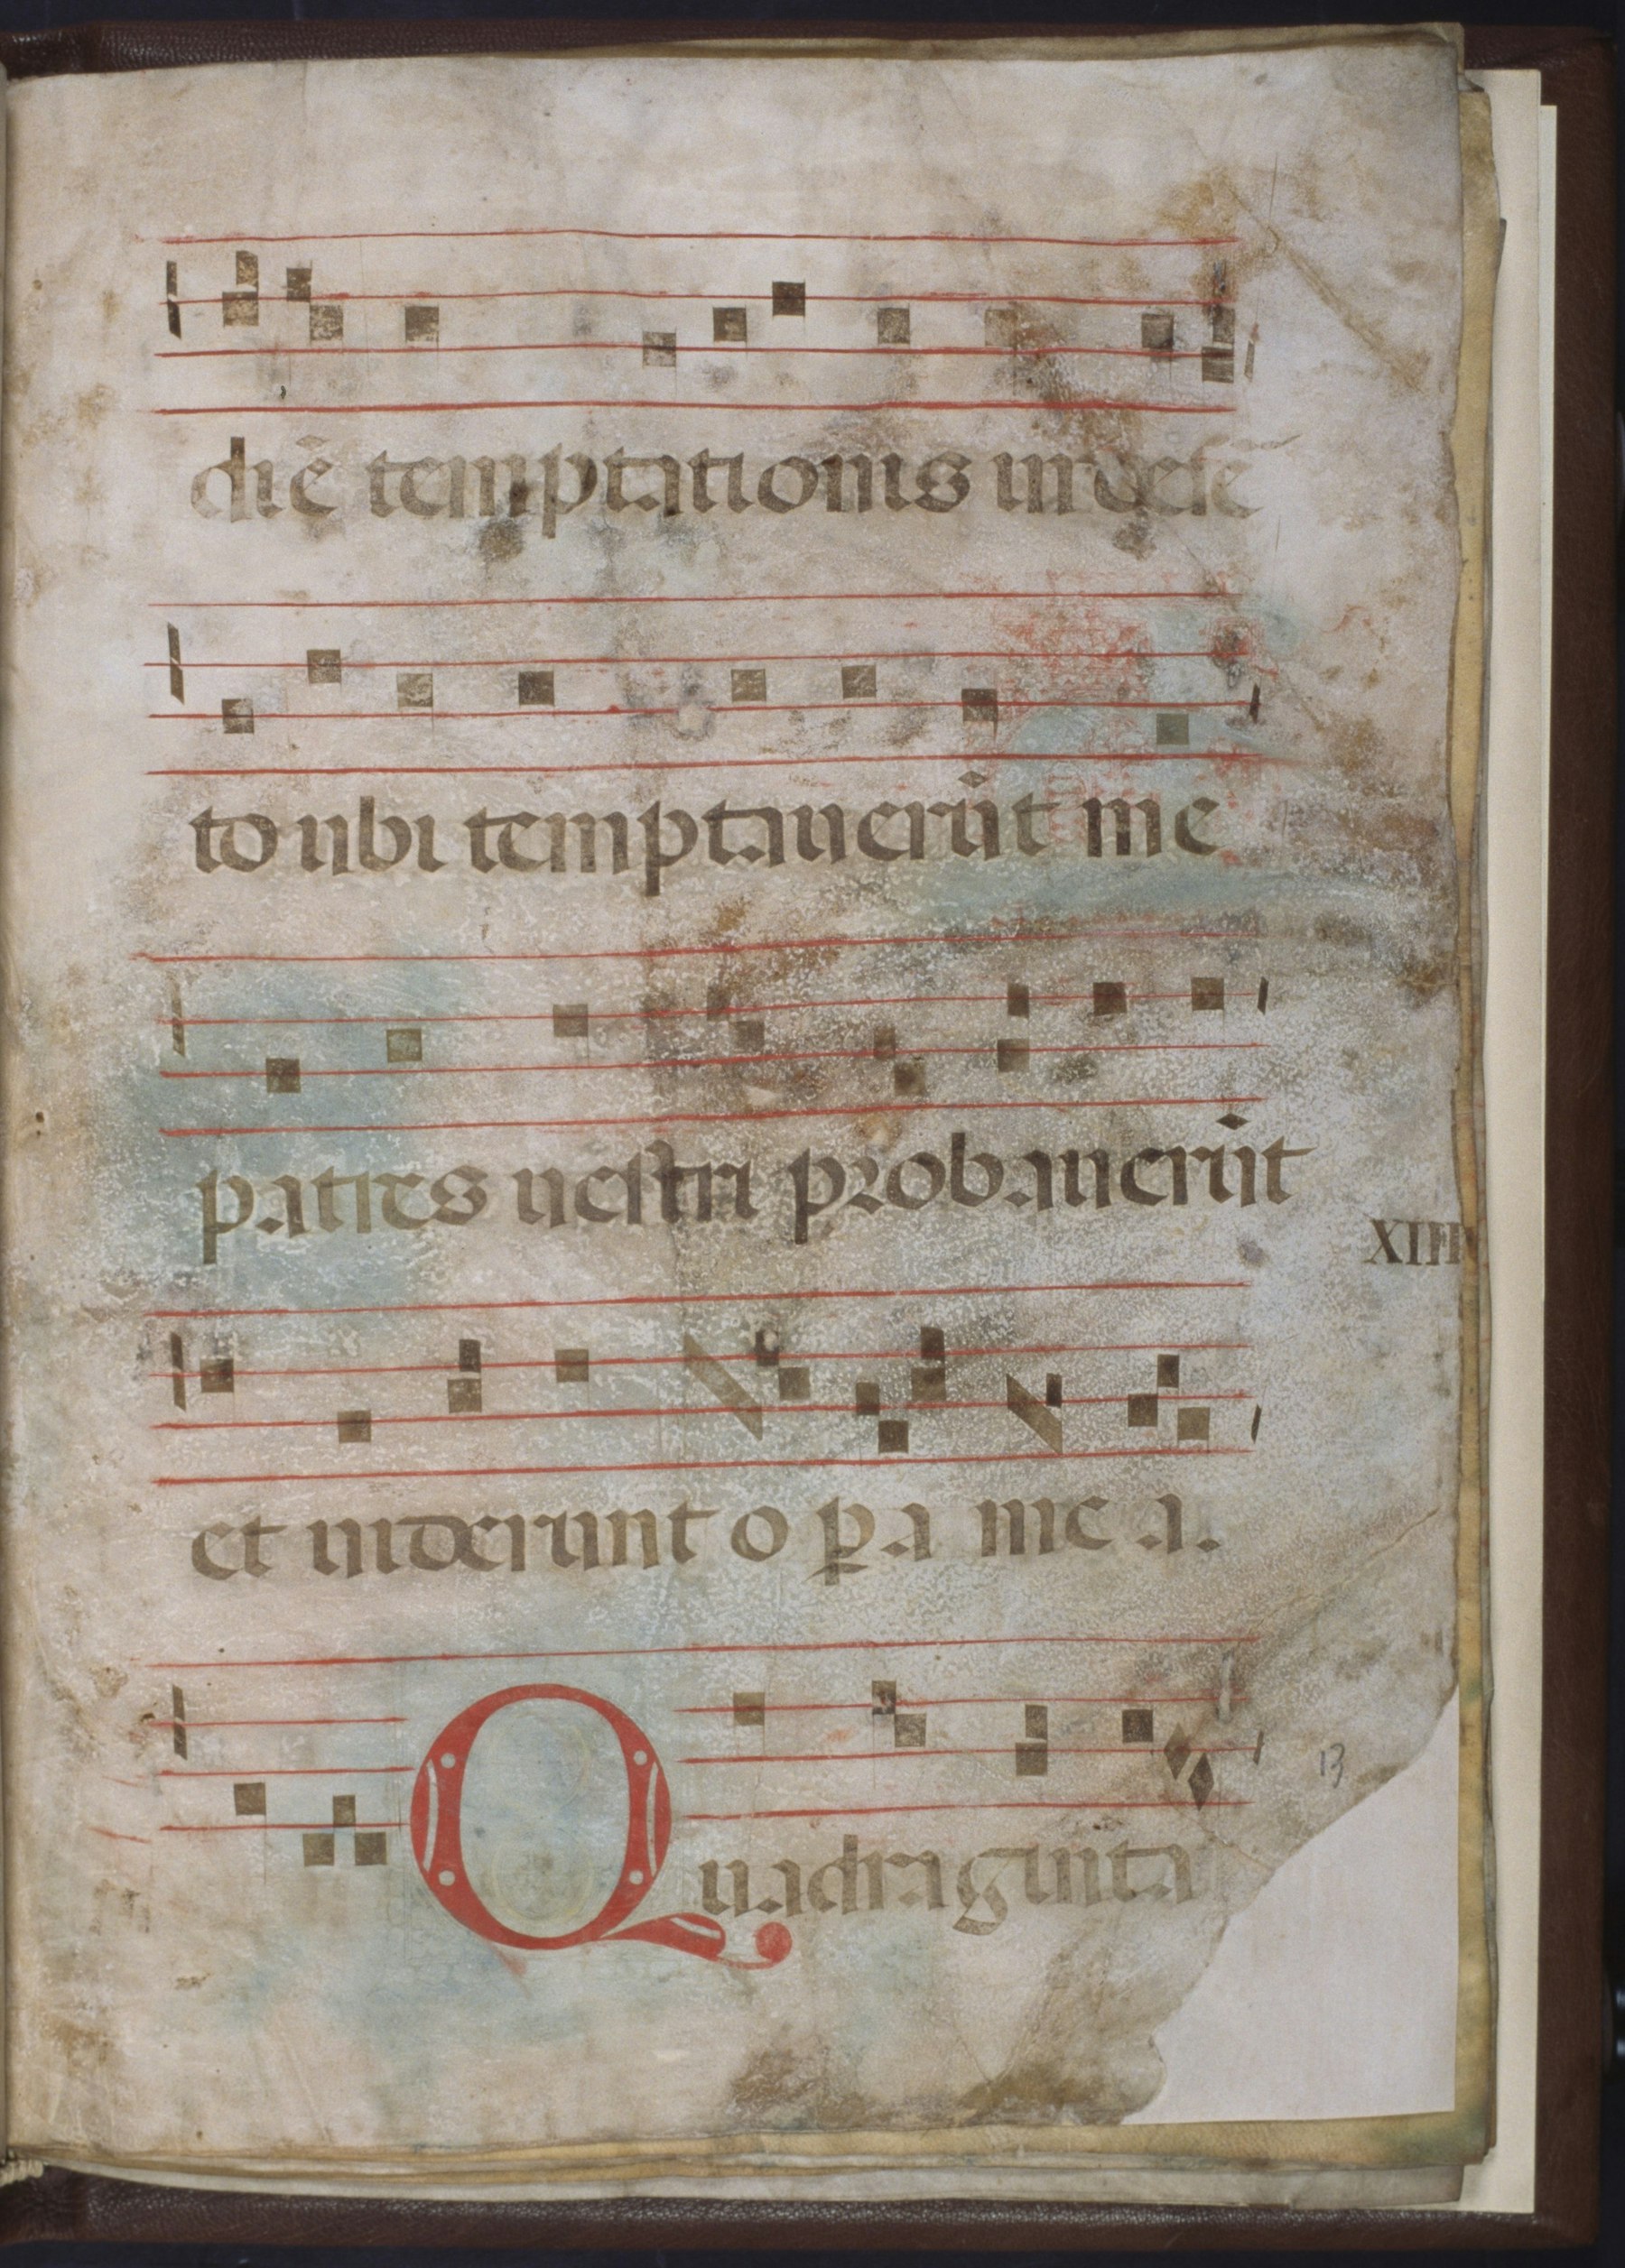 diē temptationis in dese
to ubi temptauerūt me
patres uestri probauerūt
XIII
et uiderunt o ꝑa me a.
Quadraginta
13